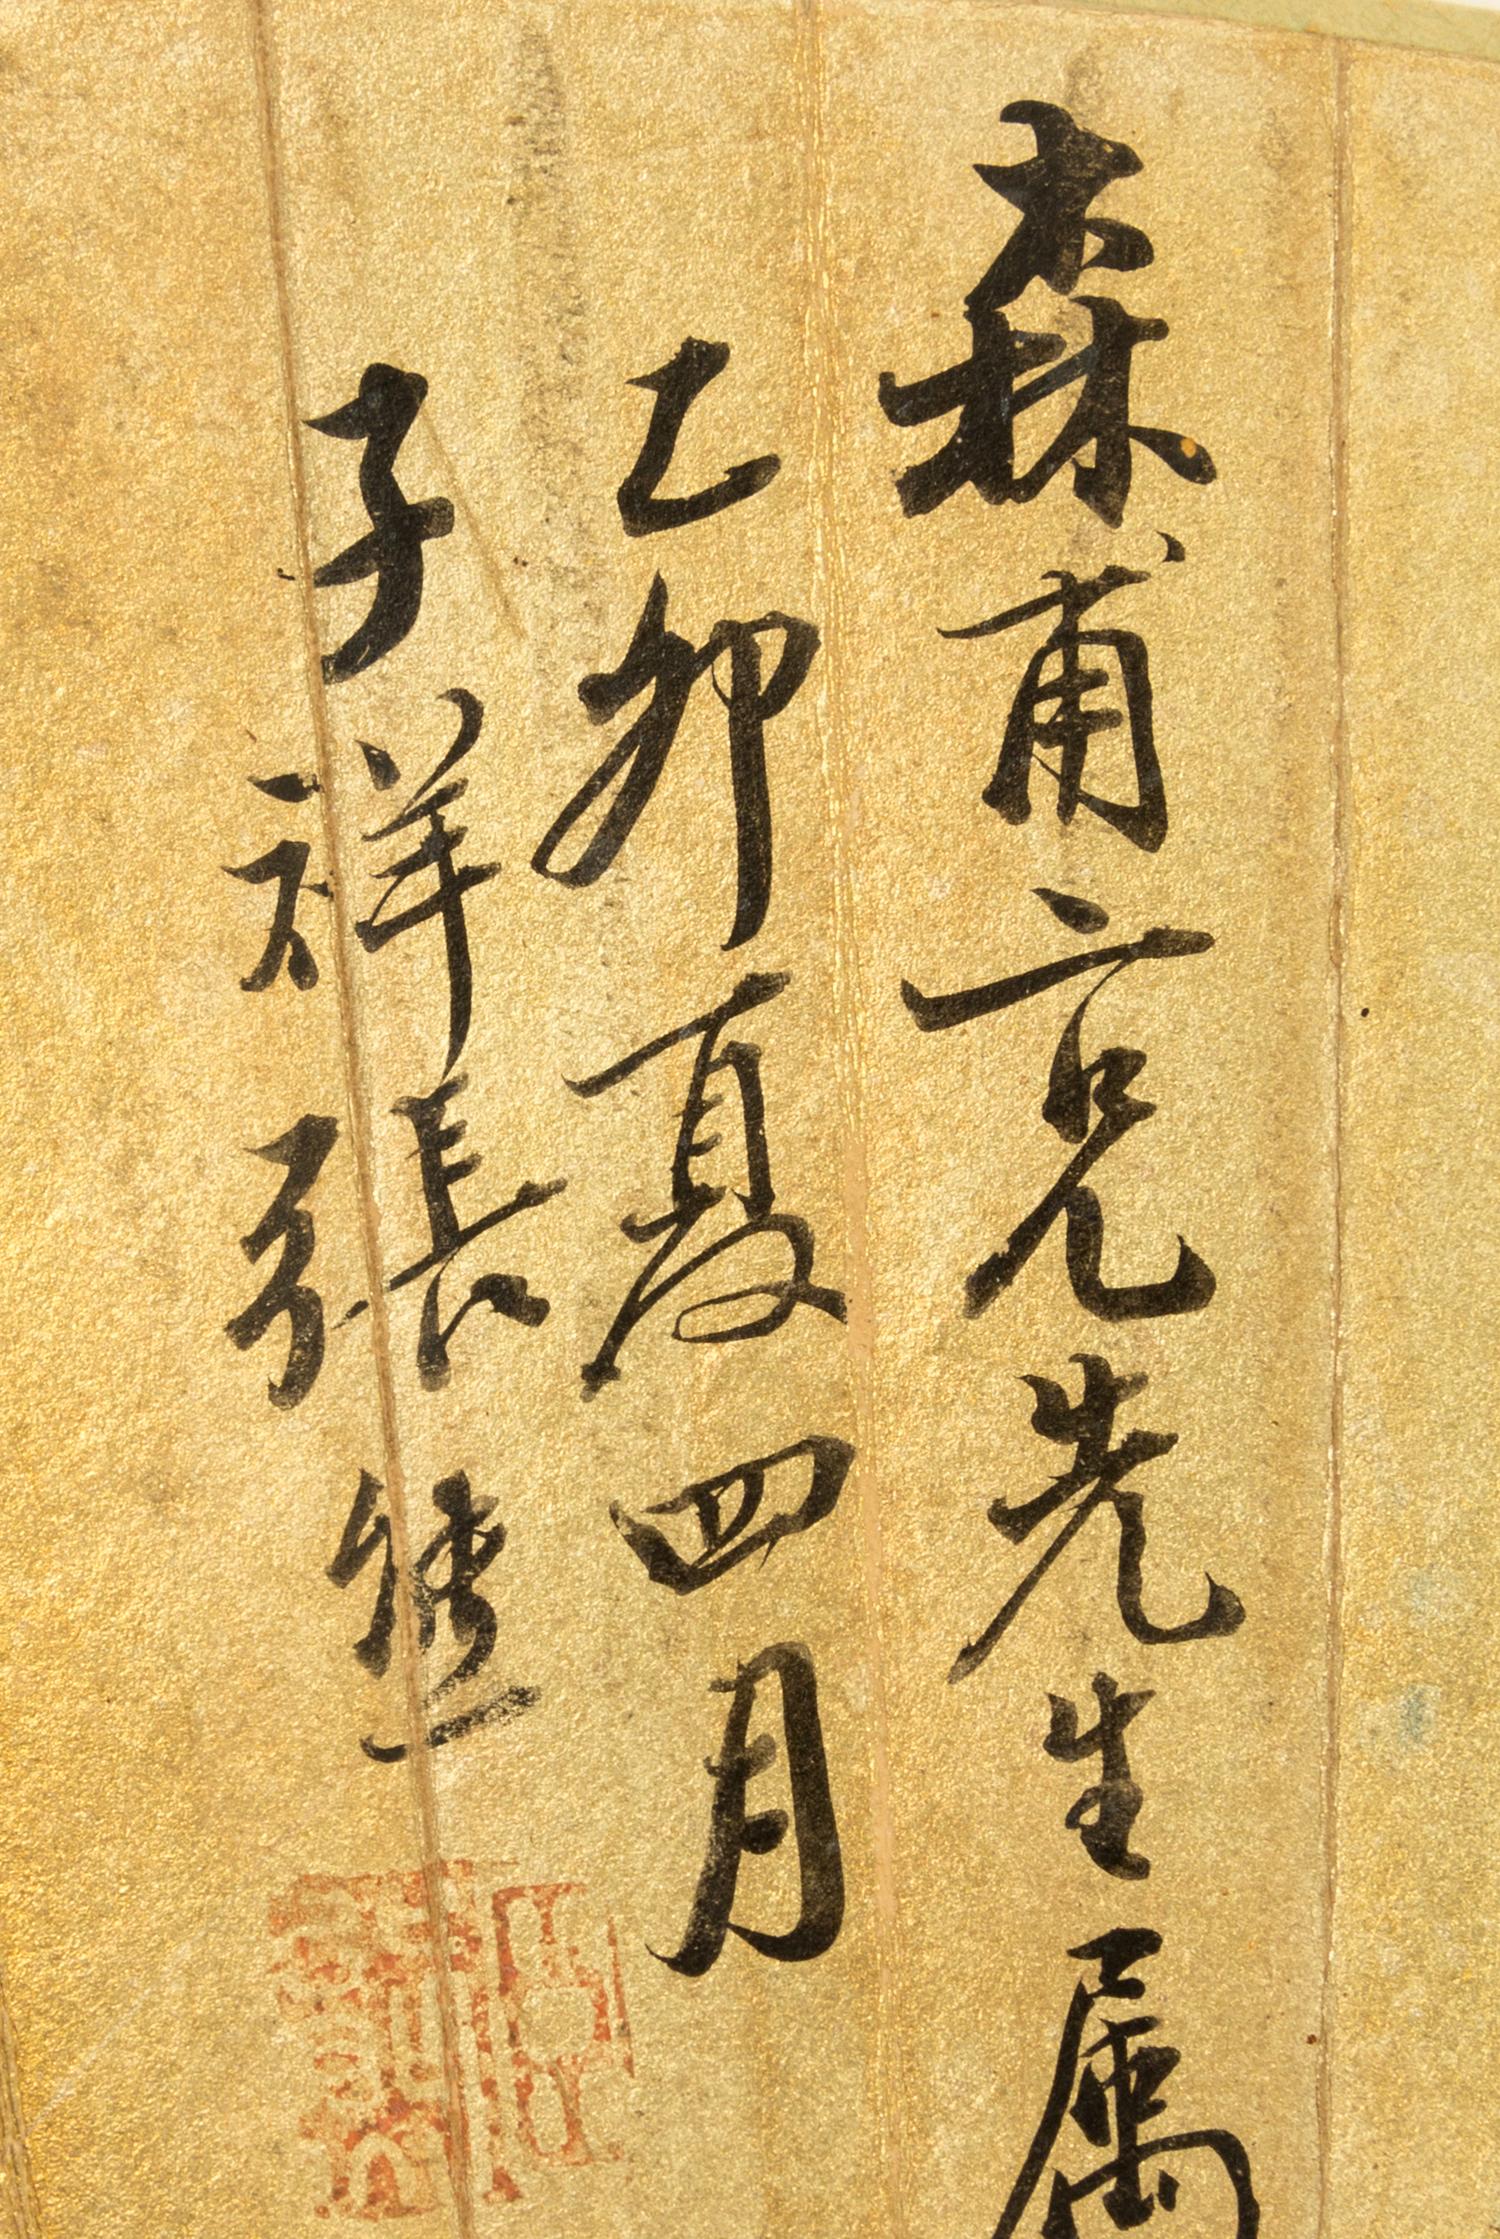 森甫言兄先生属
乙卯夏四月
子祥張熊